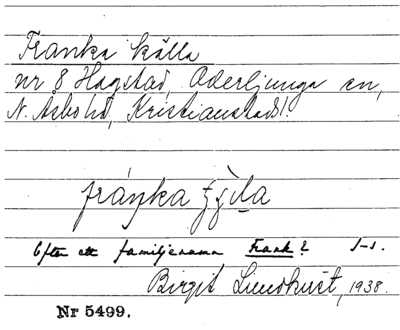 Franka källa
nr 8 Hagstad, Oderljunga sn,
N. Åsbo hd, Kristianstads l.
fráŋka
Efter ett familjenamn Frank? I–1.
Birgit Lundkvist, 1938.
Nr 5499.